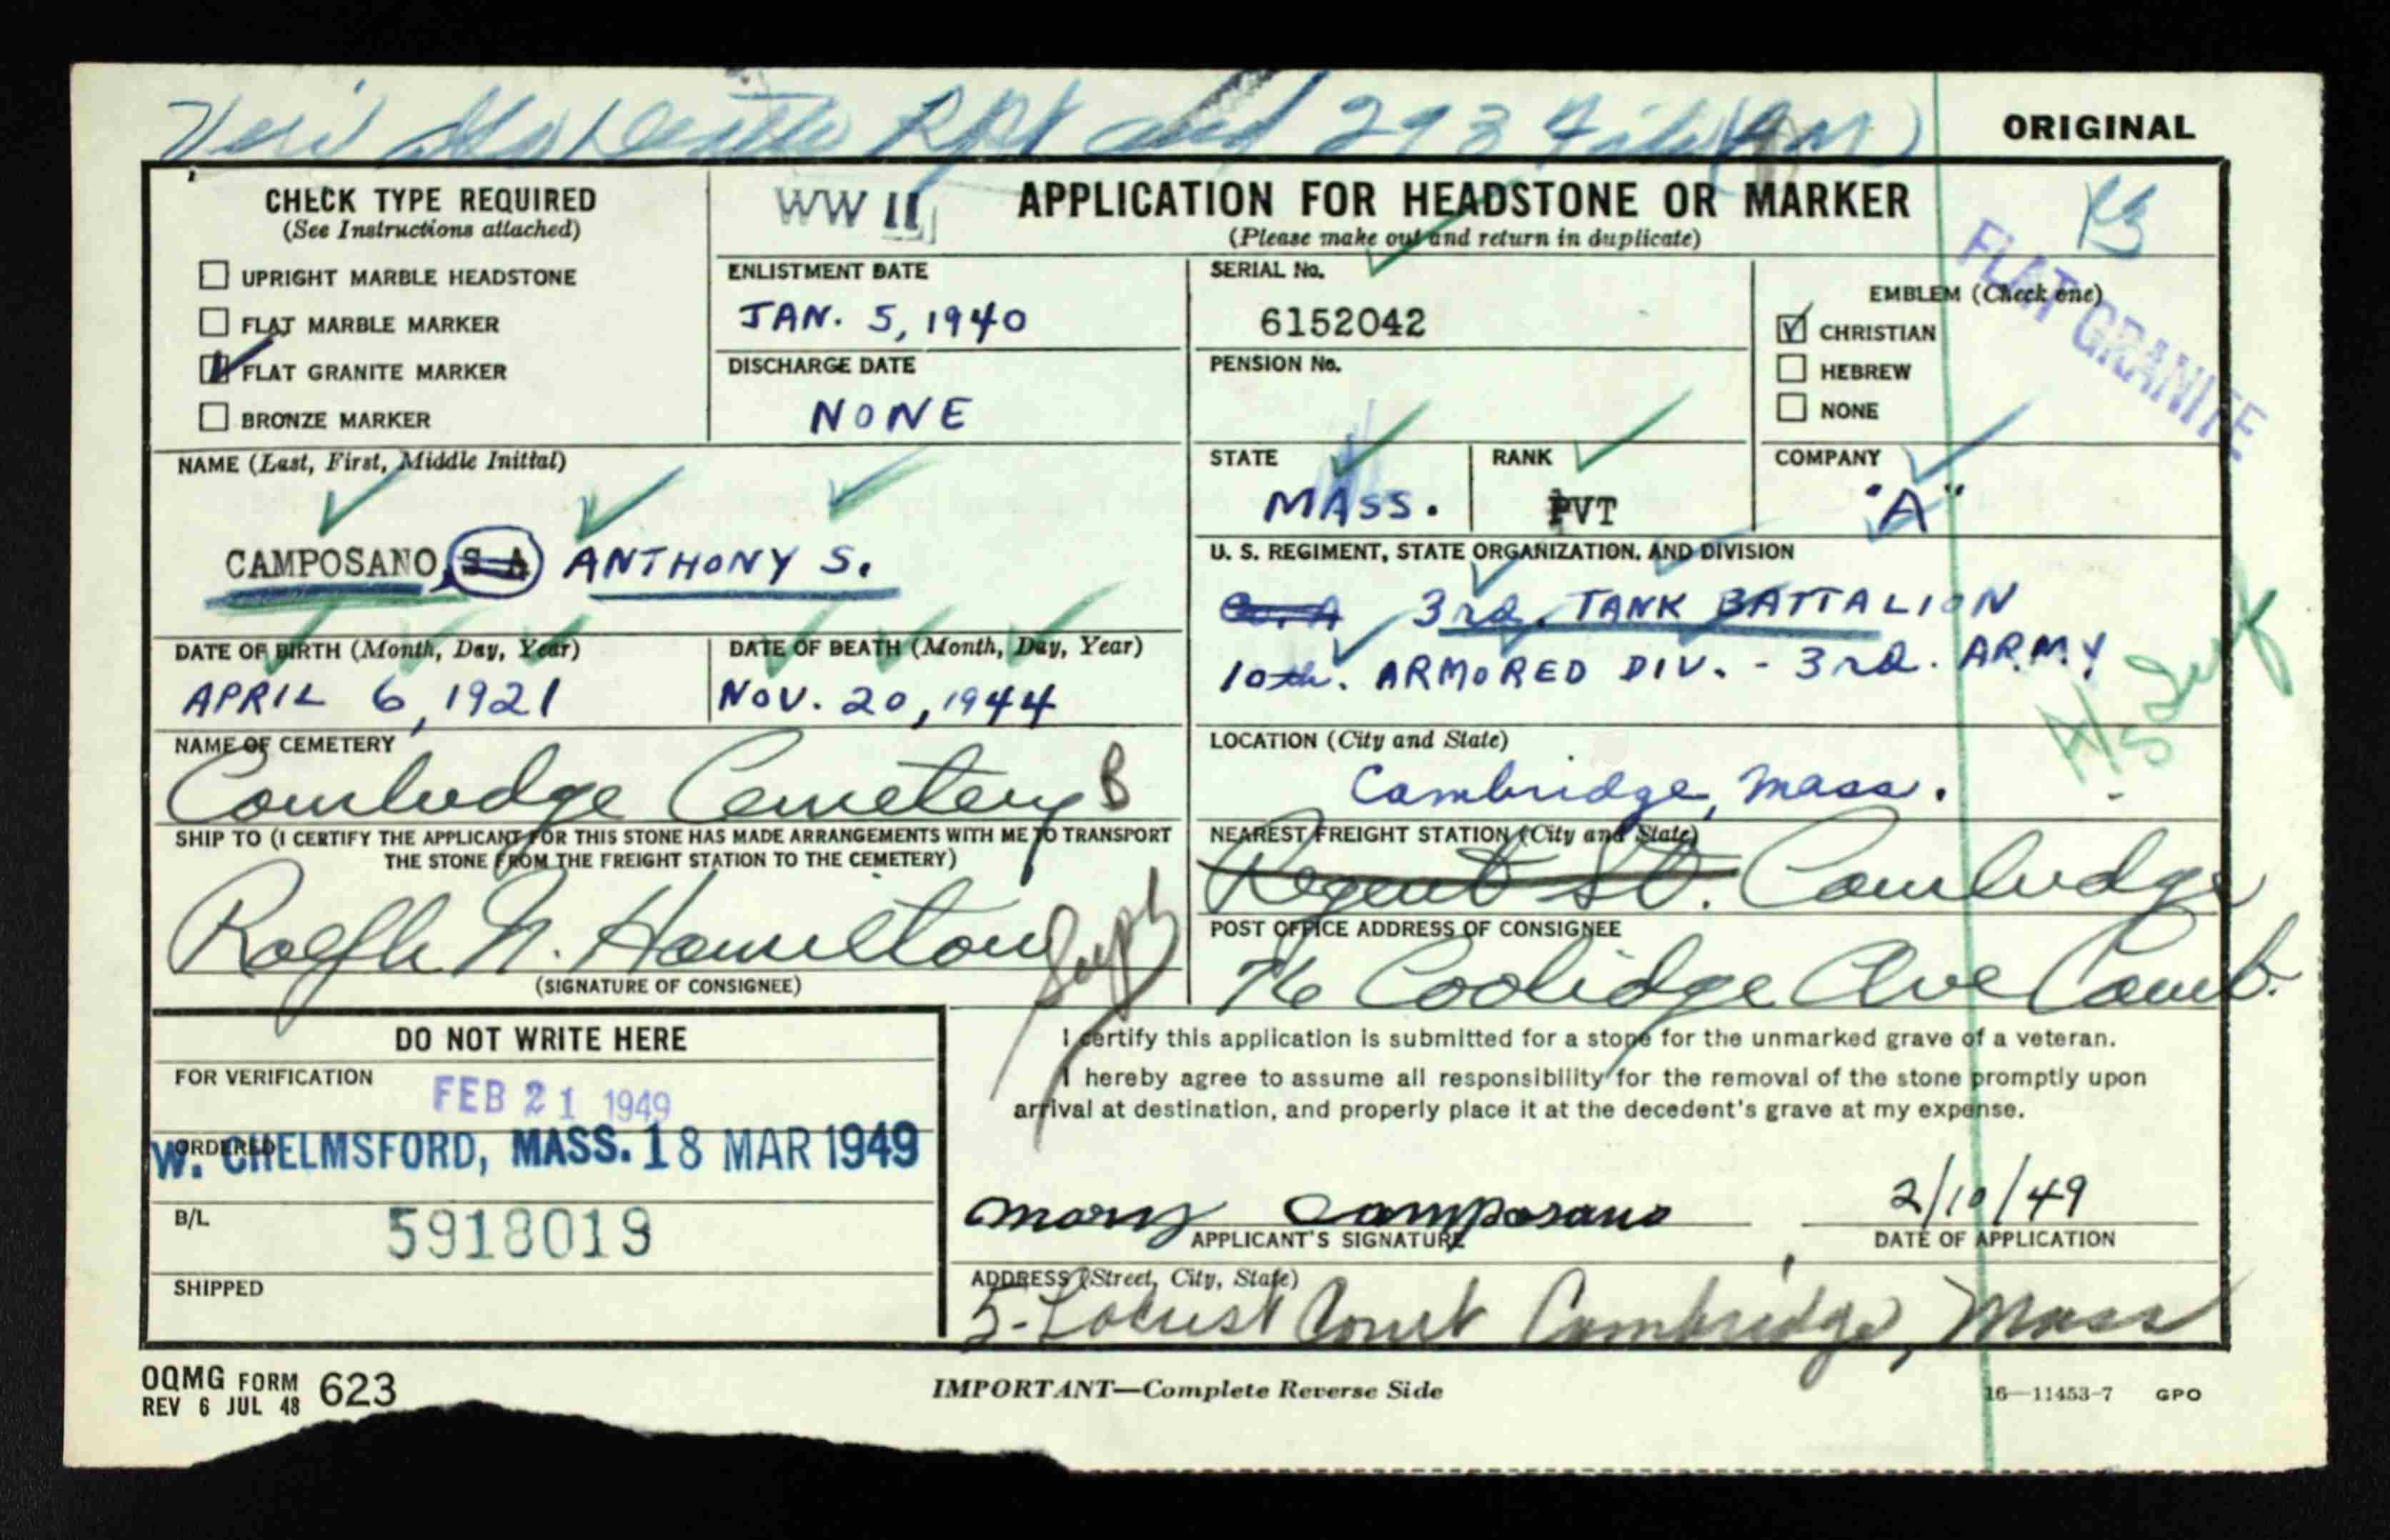 Veri Death Rpt and 293 File (QM)
ORIGINAL
CHECK TYPE REQUIRED
(See Instructions attached)
UPRIGHT MARBLE HEADSTONE
FLAT MARBLE MARKER
FLAT GRANITE MARKER
BRONZE MARKER
WW II
APPLICATION FOR HEADSTONE OR MARKER
(Please make out and return in duplicate)
ENLISTMENT DATE
JAN. 5, 1940
DISCHARGE DATE
NONE
SERIAL No.
6152042
PENSION No.
EMBLEM (Check one)
CHRISTIAN
HEBREW
NONE
FLAT GRANITE
NAME (Last, First, Middle Initial)
CAMPOSANO, S A ANTHONY S.
STATE
MASS.
RANK
PVT
COMPANY
"A"
U. S. REGIMENT, STATE ORGANIZATION, AND DIVISION
Co. A 3rd. TANK BATTALION
10th. ARMORED DIV. - 3rd. ARMY
DATE OF BIRTH (Month, Day, Year)
APRIL 6, 1921
DATE OF DEATH (Month, Day, Year)
NOV. 20, 1944
NAME OF CEMETERY
Cambridge Cemetery B
LOCATION (City and State)
Cambridge, Mass.
SHIP TO (I CERTIFY THE APPLICANT FOR THIS STONE HAS MADE ARRANGEMENTS WITH ME TO TRANSPORT
THE STONE FROM THE FREIGHT STATION TO THE CEMETERY)
N. Hamilton
(SIGNATURE OF CONSIGNEE)
Supt
NEAREST FREIGHT STATION (City and State)
Regent St. Cambridge
POST OFFICE ADDRESS OF CONSIGNEE
76 Coolidge Ave Camb.
DO NOT WRITE HERE
FOR VERIFICATION
FEB 21 1949
ORDERED
W. CHELMSFORD, MASS. 18 MAR 1949
B/L
5918019
SHIPPED
I certify this application is submitted for a stone for the unmarked grave of a veteran.
I hereby agree to assume all responsibility for the removal of the stone promptly upon
arrival at destination, and properly place it at the decedent's grave at my expense.
Mary Camposano
APPLICANT'S SIGNATURE
2/10/49
DATE OF APPLICATION
ADDRESS (Street, City, State)
5-Locust Court Cambridge, Mass
OQMG FORM 623
REV 6 JUL 48
IMPORTANT—Complete Reverse Side
16—11453-7 GPO